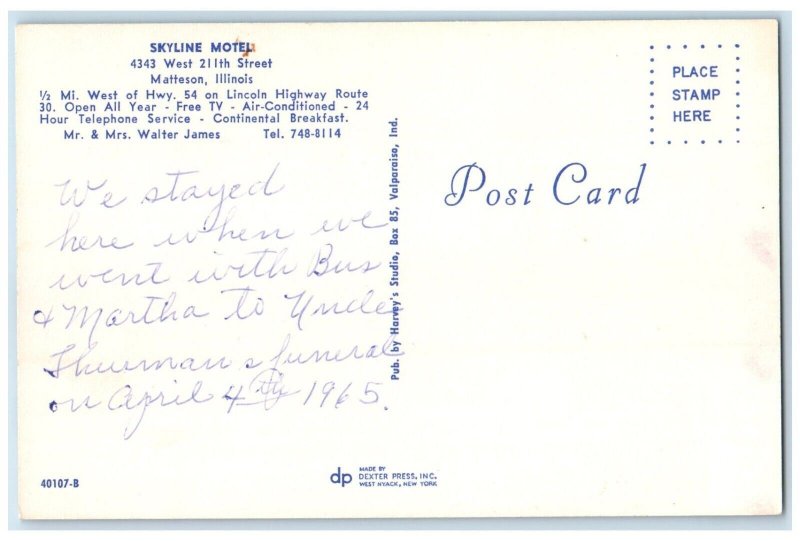 SKYLINE MOTEL
4343 West 211th Street
Matteson, Illinois
½ Mi. West of Hwy. 54 on Lincoln Highway Route
30. Open All Year - Free TV - Air-Conditioned - 24
Hour Telephone Service - Continental Breakfast.
Mr. & Mrs. Walter James Tel. 748-8114
We stayed
here when we
went with Bus
& Martha to Uncle
Thurman s funeral
on April 4th 1965.
40107-B
Pub. by Harvey's Studio, Box 85, Valparaiso, Ind.
dp
MADE BY
DEXTER PRESS, INC.
WEST NYACK, NEW YORK
Post Card
PLACE
STAMP
HERE